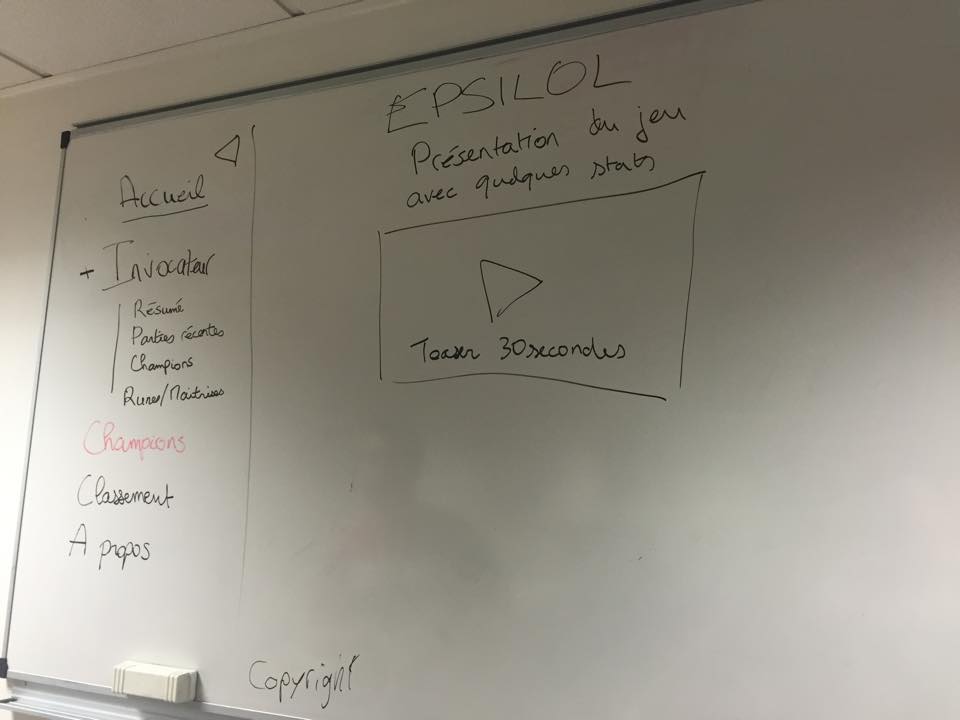 Accueil
+ Invocateur
Résumé
Parties récentes
Champions
Runes/Maitrises
Champions
Classement
A propos
EPSILOL
Présentation du jeu
avec quelques stats
Teaser 30secondes
Copyright